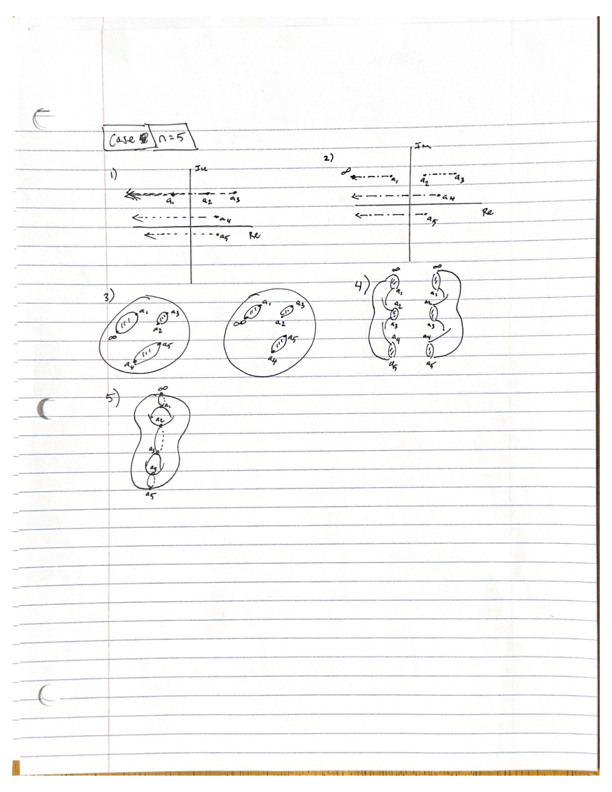 Case n=5
1) Im
a₁ a₂ a₃
a₄
a₅ Re
2) Im
∞ a₁ a₂ a₃
a₄
Re
a₅
3)
a₁ a₃
∞ a₂
a₄ a₅
a₁ a₃
∞ a₂
a₅
a₄
4) ∞ ∞
a₁ a₁
a₂ a₂
a₃ a₃
a₄ a₄
a₅ a₅
5) ∞
a₁
a₂
a₃
a₄
a₅